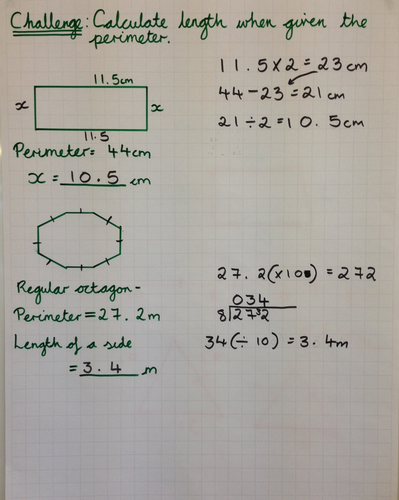 Challenge: Calculate length when given the
perimeter.
11.5cm
x
x
11.5
Perimeter= 44cm
x = 10.5 cm
11.5 x 2 = 23cm
44 - 23 = 21cm
21 ÷ 2 = 10.5cm
Regular octagon -
Perimeter = 27.2m
Length of a side
= 3.4 m
27.2(x10) = 272
034
8 27³2
34(÷ 10) = 3.4m